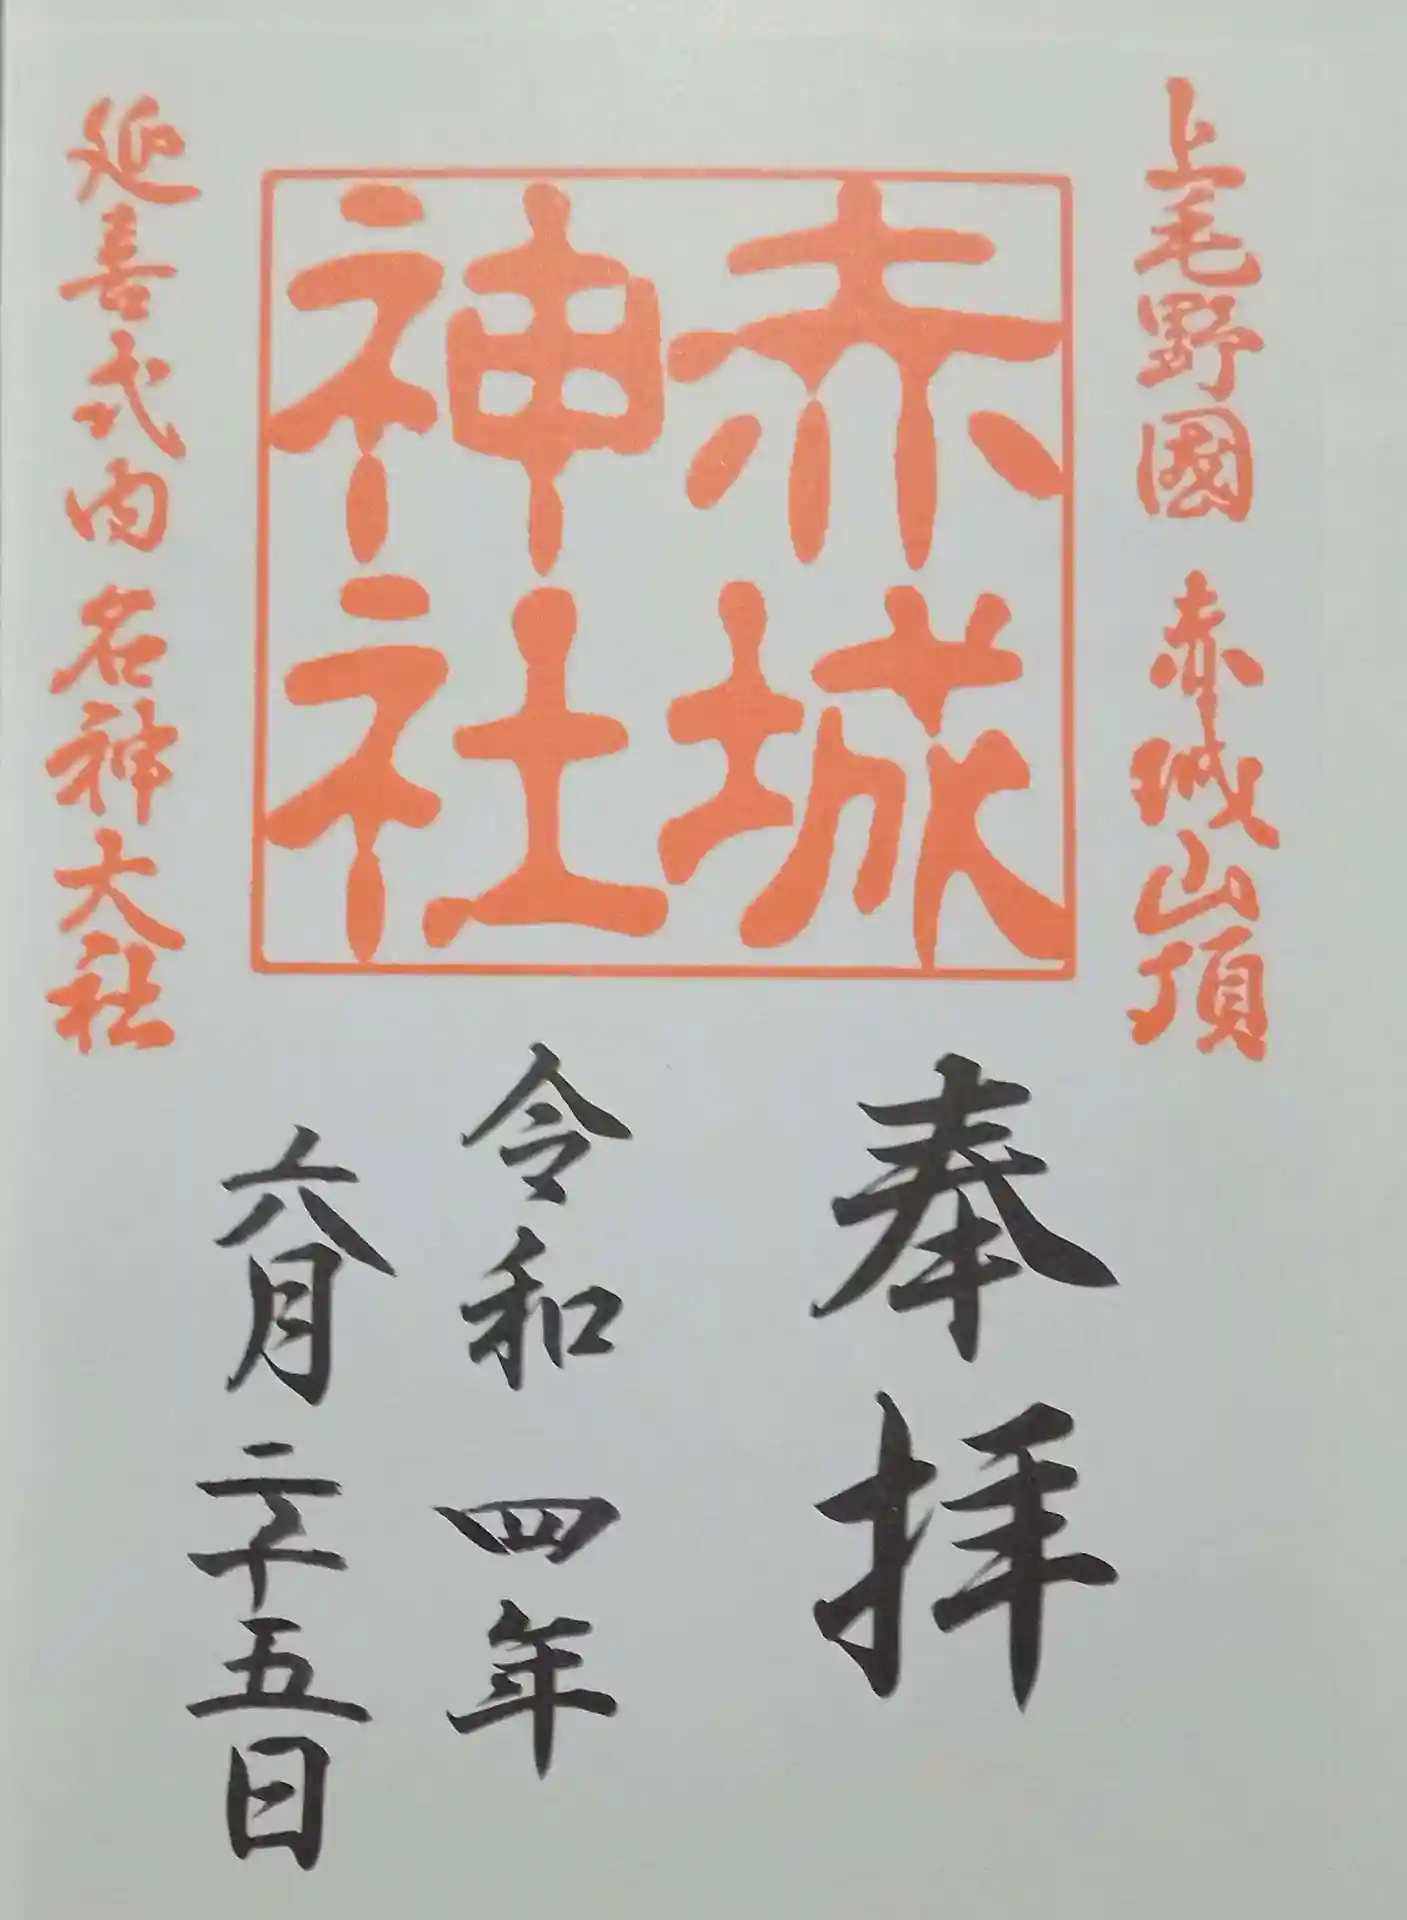 上毛野國 赤城山頂
赤城
神社
延喜式内 名神大社
奉拝
令和 四年
六月二十五日